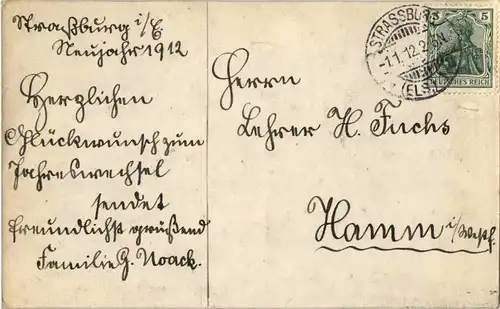 Straßburg i/E
Neujahr 1912
Herzlichen
Glückwunsch zum
Jahreswechsel
sendet
freundlichst grüßend
Familie G. Noack.
Herrn
Lehrer H. Fuchs
Hamm i/Westf.
STRASSBURG
-1.1.12.2-
(ELS.)
5 5
DEUTSCHES REICH